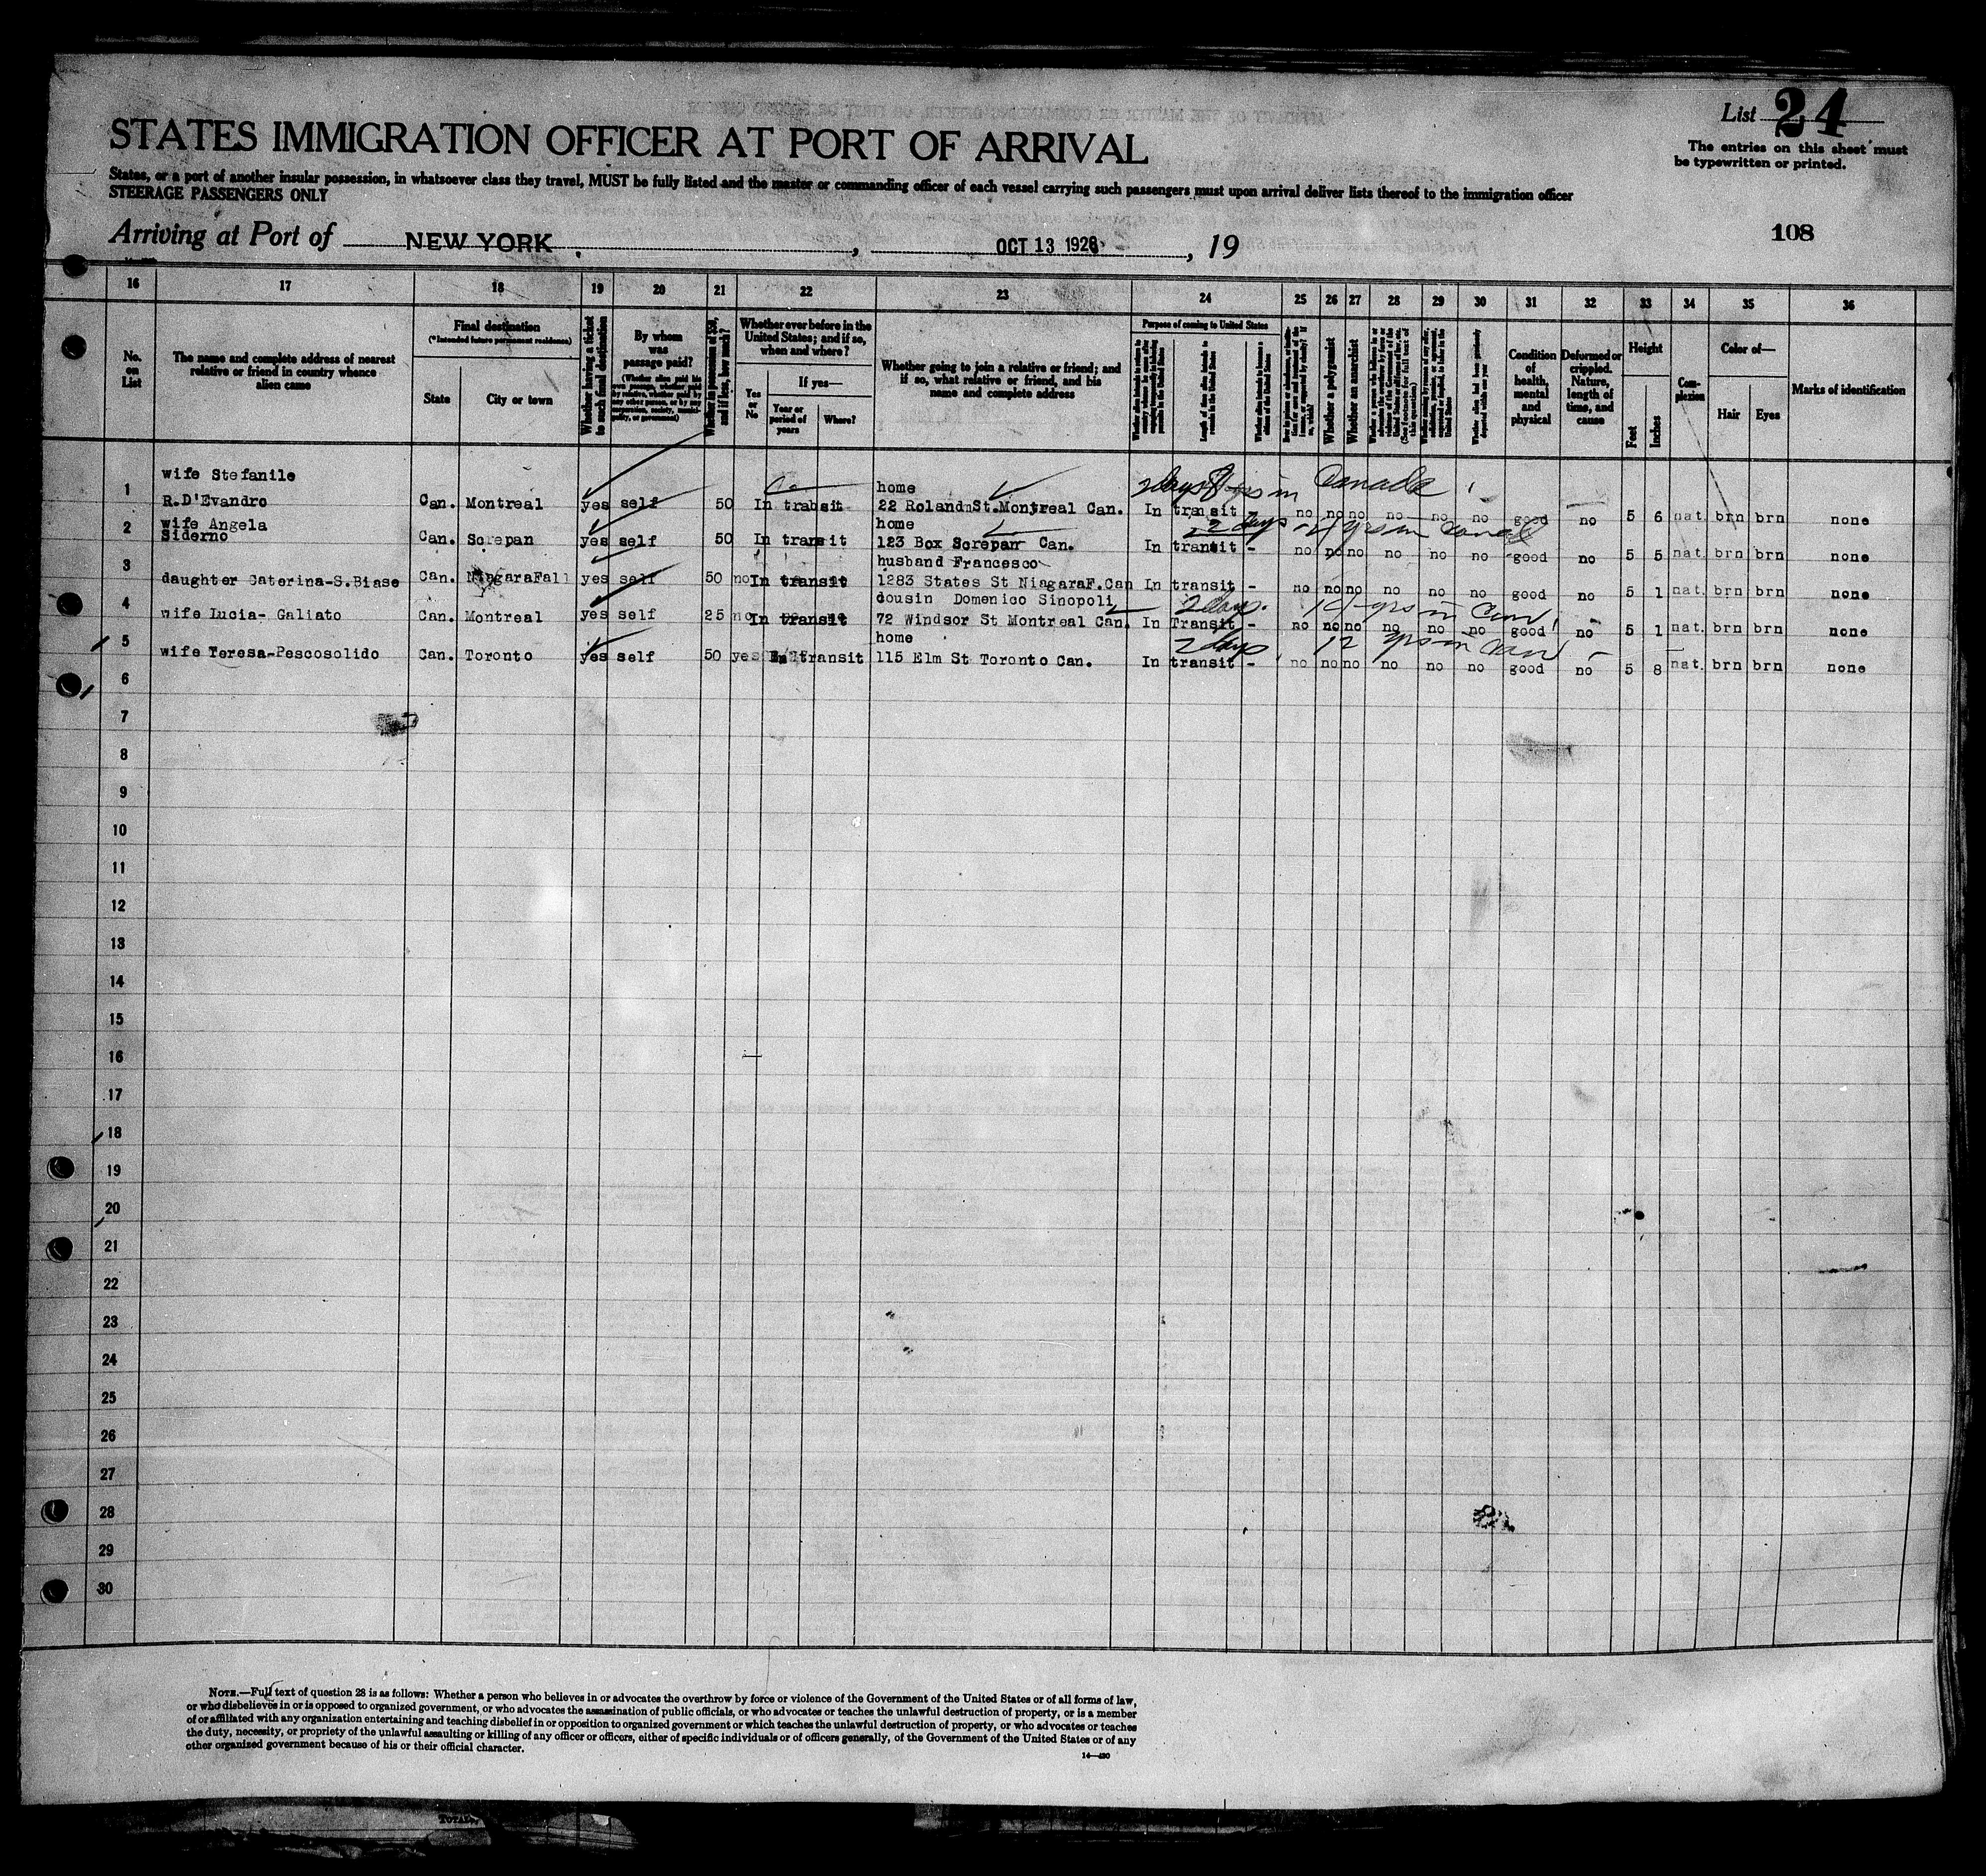 List 24
The entries on this sheet must
be typewritten or printed.
STATES IMMIGRATION OFFICER AT PORT OF ARRIVAL
States, or a port of another insular possession, in whatsoever class they travel, MUST be fully listed and the master or commanding officer of each vessel carrying such passengers must upon arrival deliver lists thereof to the immigration officer
STEERAGE PASSENGERS ONLY
108
Arriving at Port of NEW YORK, OCT 13 1928, 19
16 17 18 19 20 21 22 23 24 25 26 27 28 29 30 31 32 33 34 35 36
No. on List
The name and complete address of nearest
relative or friend in country whence
alien came
Final destination
(*Intended future permanent residence)
State
City or town
Whether having a ticket
to such final destination
By whom
was
passage paid?
Whether in possession of $50,
and if less, how much?
Whether ever before in the
United States; and if so,
when and where?
Yes or No
If yes—
Year or
period of
years
Where?
Whether going to join a relative or friend; and
if so, what relative or friend, and his
name and complete address
Purpose of coming to United States
Whether a polygamist
Whether an anarchist
Condition
of
health,
mental
and
physical
Deformed or
crippled.
Nature,
length of
time, and
cause
Height
Feet
Inches
Com-
plexion
Color of—
Hair
Eyes
Marks of identification
wife Stefanile home 2 days yrs in Canada
1 R.D'Evandro Can. Montreal yes self 50 In transit 22 Roland St. Montreal Can. In transit no no no no no no good no 5 6 nat. brn brn none
wife Angela home 2 days yrs in
2 Siderno Can. Screpan yes self 50 In transit 123 Box Screpan Can. In transit - no no no no no no good no 5 5 nat. brn brn none
husband Francesco
3 daughter Caterina-S.Biase Can. NiagaraFall yes self 50 no In transit 1283 States St NiagaraF.Can In transit - no no no no no no good no 5 1 nat. brn brn none
cousin Domenico Sinopoli 2 days. yrs in Can
4 wife Lucia- Galiato Can. Montreal yes self 25 no In transit 72 Windsor St Montreal Can. In Transit - no no no no no no good no 5 1 nat. brn brn none
home 2 days 12 yrs in Can
5 wife Teresa-Pescosolido Can. Toronto yes self 50 yes In transit 115 Elm St Toronto Can. In transit - no no no no no no good no 5 8 nat. brn brn none
6
7
8
9
10
11
12
13
14
15
16
17
18
19
20
21
22
23
24
25
26
27
28
29
30
NOTE.—Full text of question 28 is as follows: Whether a person who believes in or advocates the overthrow by force or violence of the Government of the United States or of all forms of law,
or who disbelieves in or is opposed to organized government, or who advocates the assassination of public officials, or who advocates or teaches the unlawful destruction of property, or is a member
of or affiliated with any organization entertaining and teaching disbelief in or opposition to organized government or which teaches the unlawful destruction of property, or who advocates or teaches
the duty, necessity, or propriety of the unlawful assaulting or killing of any officer or officers, either of specific individuals or of officers generally, of the Government of the United States or of any
other organized government because of his or their official character.
14—430